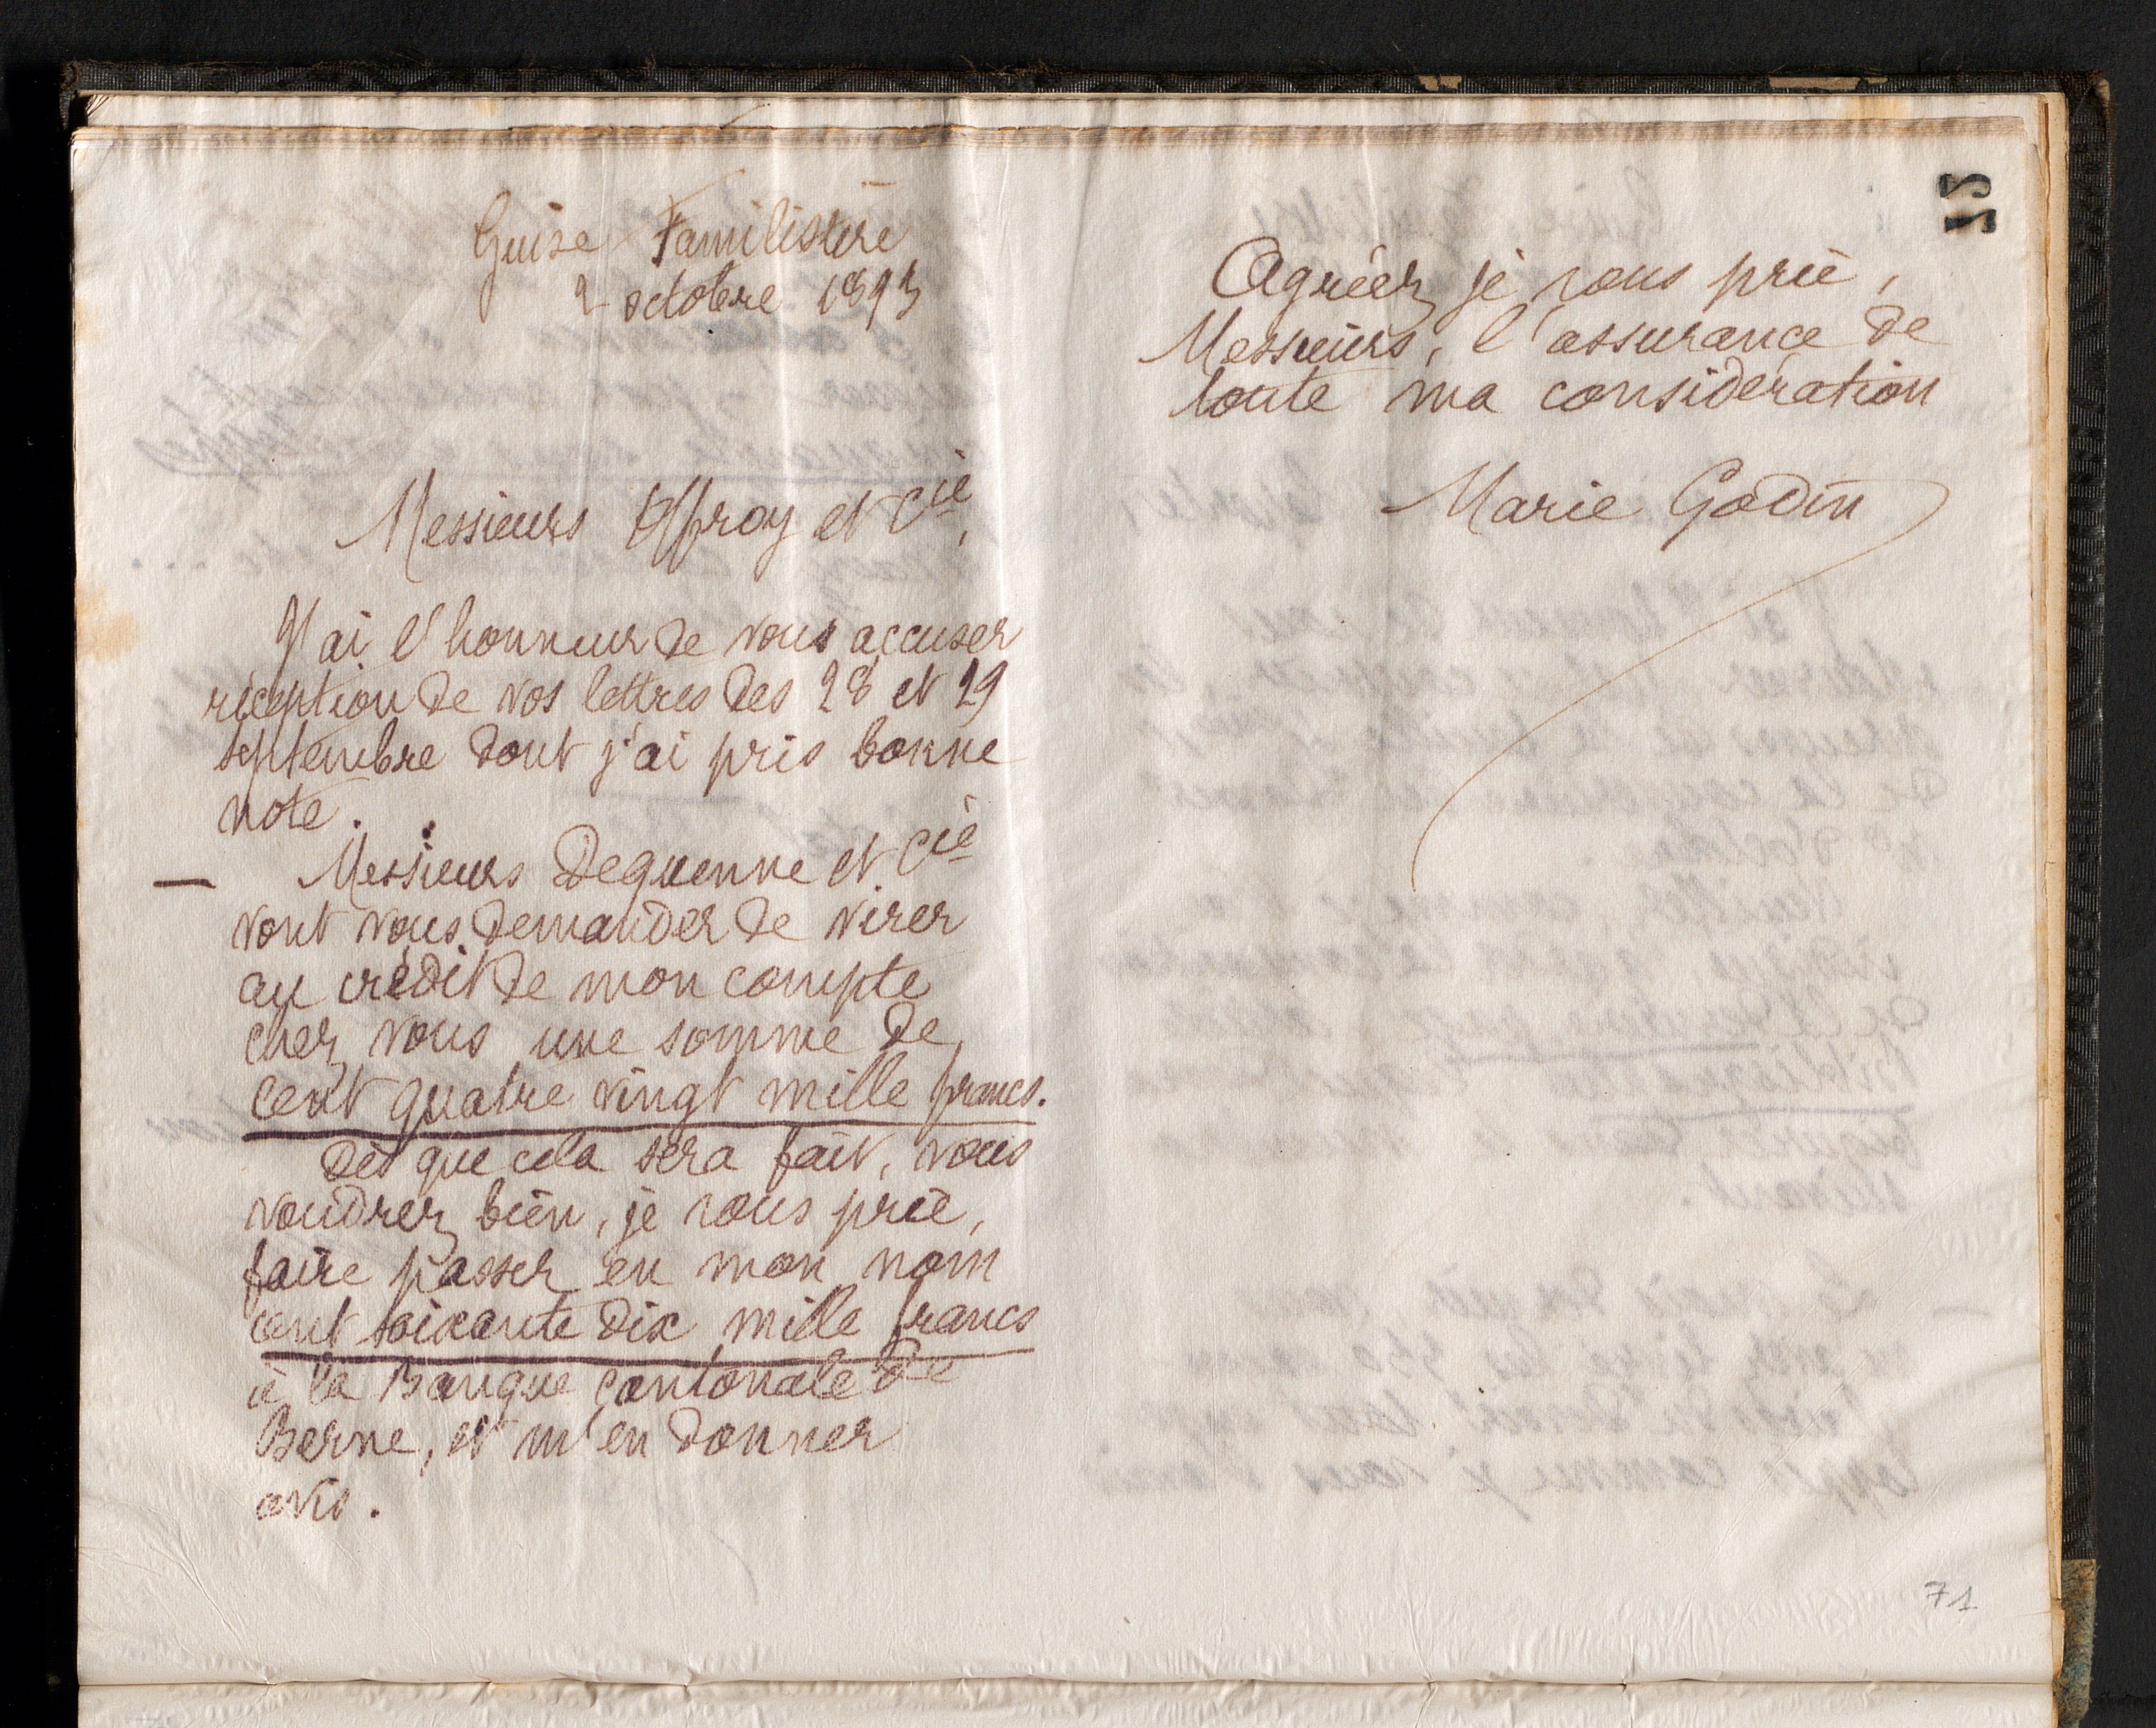 Guise Familistère
2 octobre 1893
Messieurs Offroy et Cie,
J'ai l'honneur de vous accuser
réception de vos lettres des 28 et 29
septembre dont j'ai pris bonne
note.
— Messieurs Dequenne et Cie
vont vous demander de virer
au crédit de mon compte
chez vous une somme de
cent quatre vingt mille francs.
Dès que cela sera fait, vous
voudrez bien, je vous prie,
faire passer en mon nom
cent soixante dix mille francs
à la Banque cantonale de
Berne, et m'en donner
avis.
Agréez, je vous prie,
Messieurs, l'assurance de
toute ma considération
Marie Godin
71